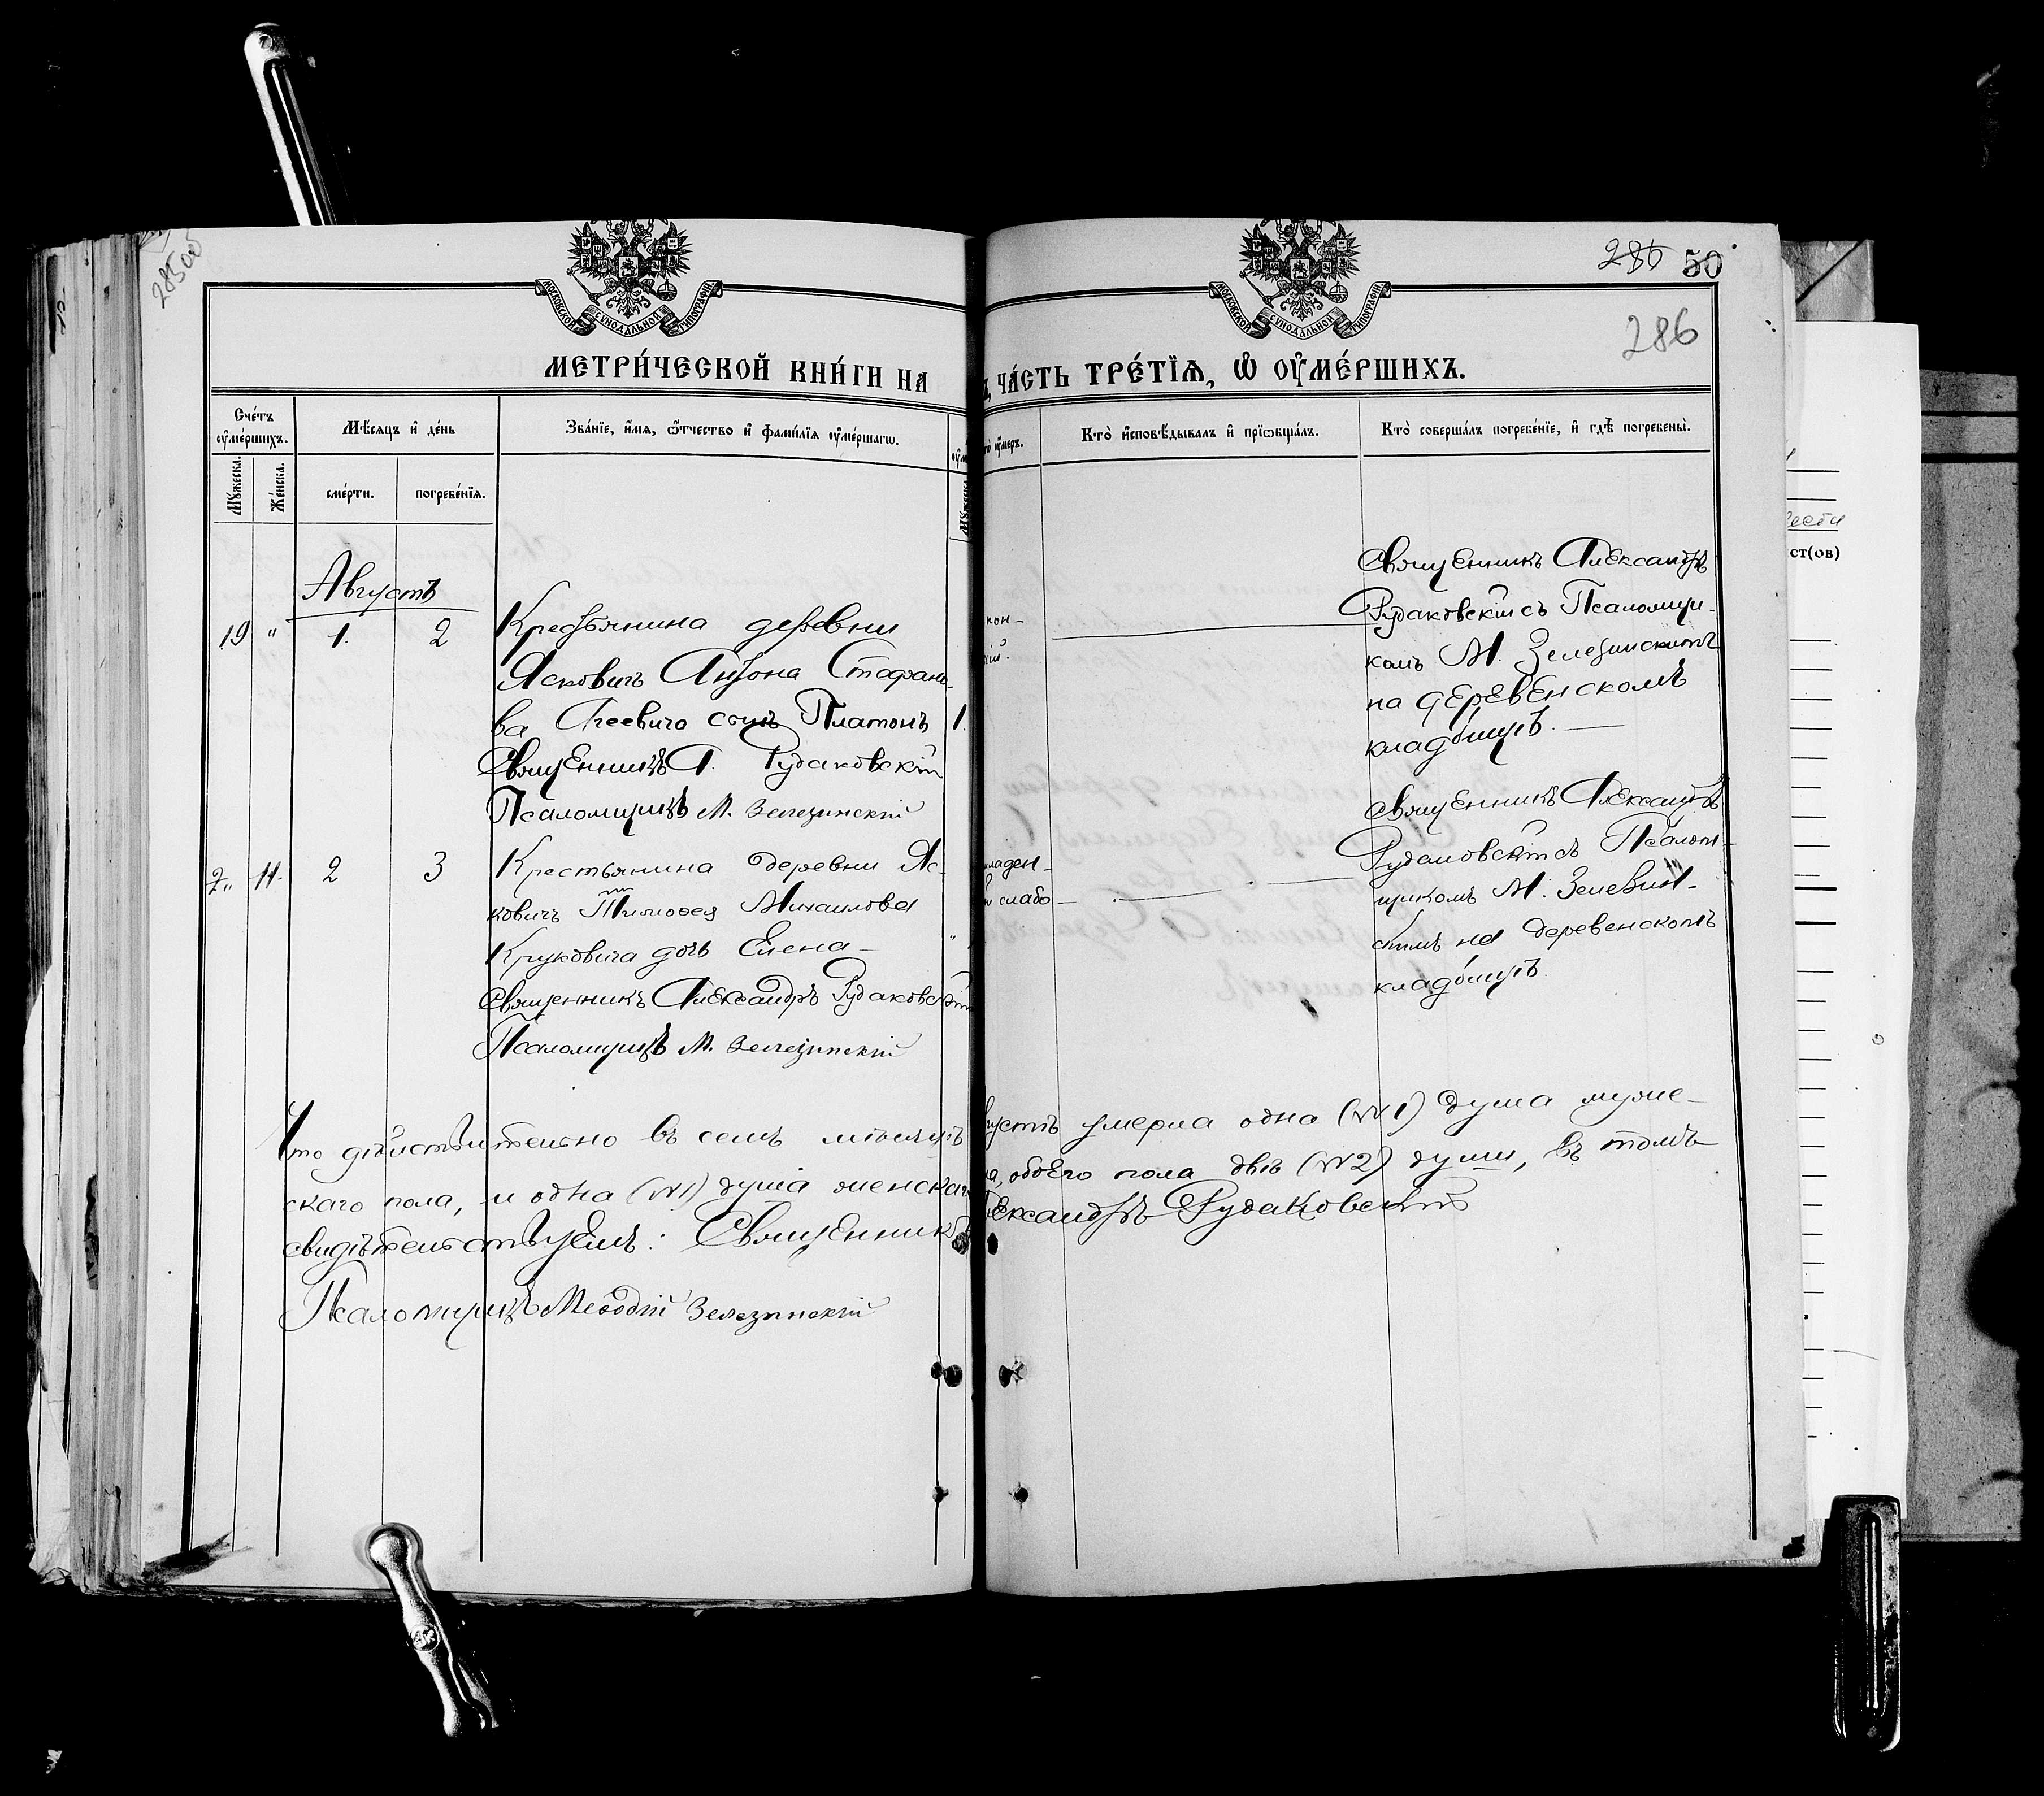 285об
286 50
286
МОСКОВСКОЙ СѴНОДАЛЬНОЙ ТИПОГРАФІИ
МОСКОВСКОЙ СѴНОДАЛЬНОЙ ТИПОГРАФІИ
МЕТРИ́ЧЕСКОЙ КНИ́ГИ НА
ЧА́СТЬ ТРЕ́ТЇѦ, Ѡ҆ ОУ҆МЕ́РШИХЪ.
Счéтъ ᲂу҆мéршихъ.
Мѣ́сѧцъ и҆ дéнь
Звáнїе, и҆́мѧ, ѻ҆́тчество и҆ фамѝлїѧ ᲂу҆мéршагѡ.
ᲂу҆́меръ.
Ктò и҆сповѣ́дывалъ и҆ прїѡбщáлъ.
Ктò совершáлъ погребéнїе, и҆ гдѣ̀ погребены̀.
Мꙋ́жеска.
Жéнска.
смéрти.
погребéнїѧ.
Мꙋ́жеска.
Августъ
19 " 1. 2 Крестьянина деревни
Ясковичъ Антона Стефано-
ва сынъ Платонъ 1.
Священникъ А. Рудаковскій
Псаломщикъ М. Зелезинскій
кон-
Священникъ Александръ
Рудаковскій съ Псаломщи-
комъ М. Зелезинскимъ
на деревенскомъ
кладбищѣ.
" 11. 2 3 Крестьянина деревни Яс-
ковичъ Тимоѳея Михаилова
Круковича дочь Елена
Священникъ Александръ Рудаковскій
Псаломщикъ М. Зелезинскій
младен-
слабо
Священникъ Александръ
Рудаковскій съ Псалом-
щикомъ М. Зелезин-
скимъ на деревенскомъ
кладбищѣ.
Что дѣйствительно въ семъ мѣсяцѣ
густѣ умерла одна (№1) душа муже-
скаго пола, и одна (№1) душа женскаго
обоего пола двѣ (№2) души, въ томъ
свидѣтельствуемъ: Священникъ
Александръ Рудаковскій
Псаломщикъ Меѳодій Зелезинскій
ст(ов)